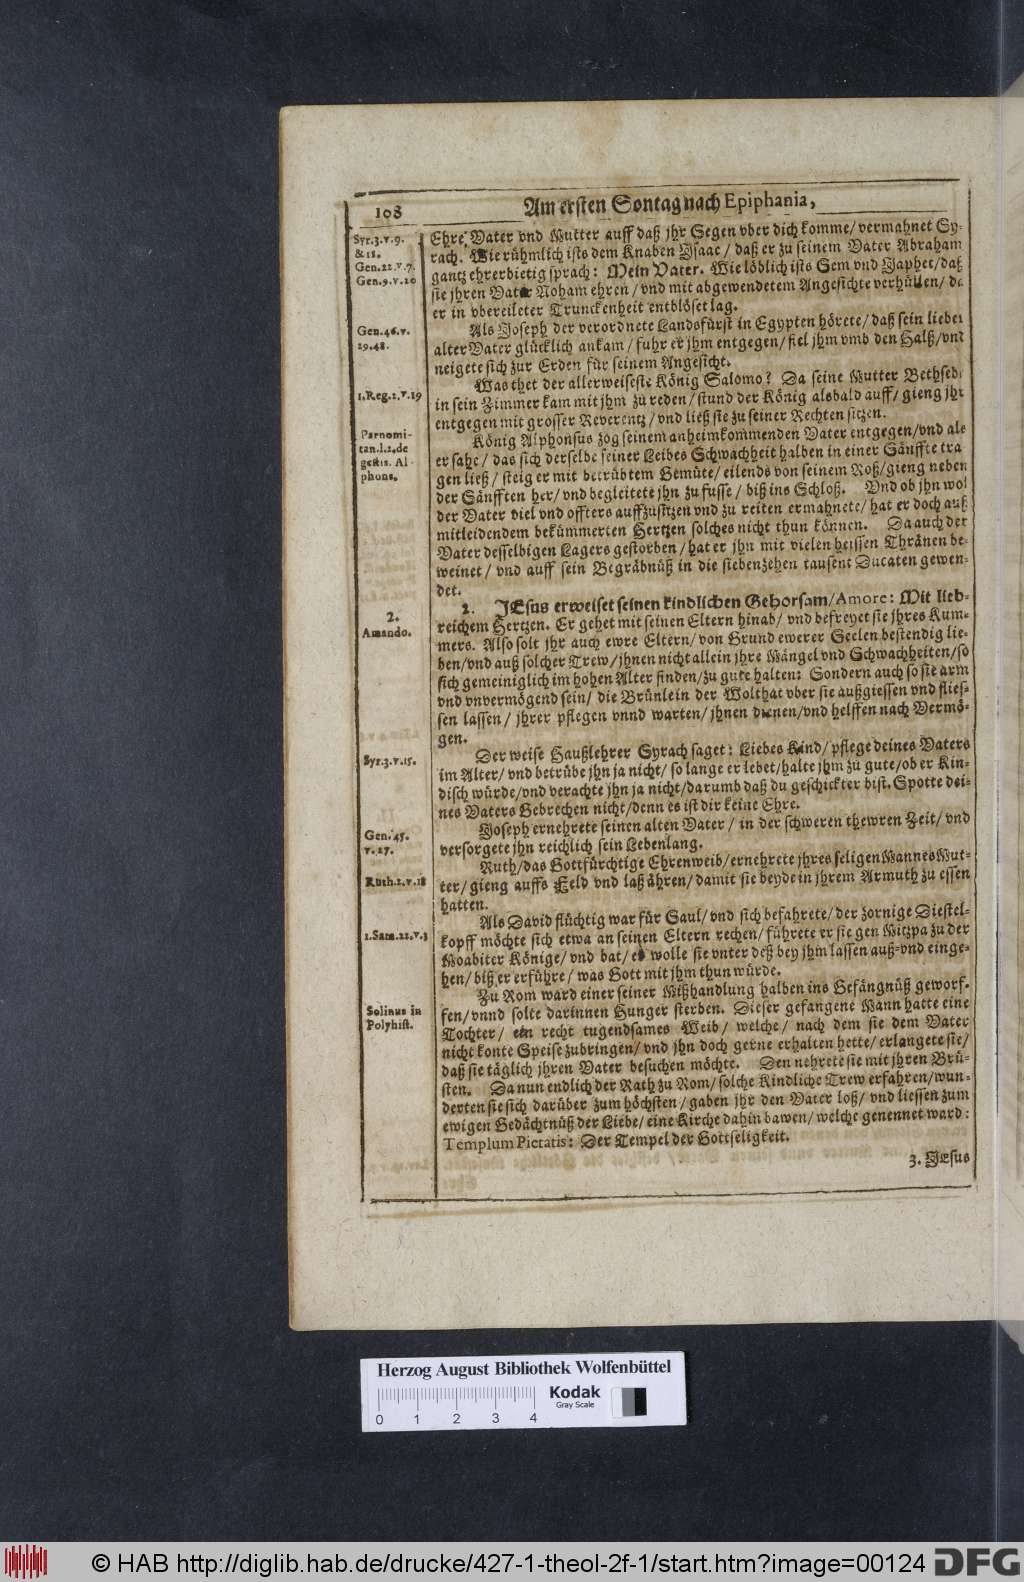 108
Am ersten Sontag nach Epiphania,
Syr.3.v.9.
& 11.
Gen.22.v.7.
Gen.9.v.20
Ehre Vater vnd Mutter auff daß jhr Segen vber dich komme/ vermahnet Sy-
rach. Wie rühmlich ists dem Knaben Ysaac/ daß er zu seinem Vater Abraham
gantz ehrerbietig sprach: Mein Vater. Wie löblich ists Sem vnd Japhet/ daß
sie jhren Vater Noham ehren/ vnd mit abgewendetem Angesichte verhüllen/ da
er in vbereileter Trunckenheit entblöset lag.
Gen.46.v.
29.48.
Als Joseph der verordnete Landsfürst in Egypten hörete/ daß sein lieber
alter Vater glücklich ankam/ fuhr er jhm entgegen/ fiel jhm vmb den Halß/ vnd
neigete sich zur Erden für seinem Angesicht.
1.Reg.2.v.19
Was thet der allerweiseste König Salomo? Da seine Mutter Bethseb
in sein Zimmer kam mit jhm zu reden/ stund der König alsbald auff/ gieng jhr
entgegen mit grosser Reverentz/ vnd ließ sie zu seiner Rechten sitzen.
Parnomi-
tan.l.2.de
gestis. Al-
phons.
König Alphonsus zog seinem anheimkommenden Vater entgegen/ vnd als
er sahe/ das sich derselbe seiner Leibes Schwachheit halben in einer Sänffte tra
gen ließ/ steig er mit betrübtem Gemüte/ eilends von seinem Roß/ gieng neben
der Sänfften her/ vnd begleitete jhn zu fusse/ biß ins Schloß. Vnd ob jhn wol
der Vater viel vnd offters auffzusitzen vnd zu reiten ermahnete/ hat er doch auß
mitleidendem bekümmerten Hertzen solches nicht thun können. Da auch der
Vater desselbigen Lagers gestorben/ hat er jhn mit vielen heissen Thränen be-
weinet/ vnd auff sein Begräbnüß in die siebenzehen tausent Ducaten gewen-
det.
2.
Amando.
2. JEsus erweiset seinen kindlichen Gehorsam/ Amore: Mit lieb-
reichem Hertzen. Er gehet mit seinen Eltern hinab/ vnd befreyet sie jhres Kum-
mers. Also solt jhr auch ewre Eltern/ von Grund ewerer Seelen bestendig lie-
ben/ vnd auß solcher Trew/ jhnen nicht allein jhre Mängel vnd Schwachheiten/ so
sich gemeiniglich im hohen Alter finden/ zu gute halten: Sondern auch so sie arm
vnd vnvermögend sein/ die Brünlein der Wolthat vber sie außgiessen vnd flies-
sen lassen/ jhrer pflegen vnnd warten/ jhnen dienen/ vnd helffen nach Vermö-
gen.
Syr.3.v.15.
Der weise Haußlehrer Syrach saget: Liebes Kind/ pflege deines Vaters
im Alter/ vnd betrübe jhn ja nicht/ so lange er lebet/ halte jhm zu gute/ ob er Kin-
disch würde/ vnd verachte jhn ja nicht/ darumb daß du geschickter bist. Spotte dei-
nes Vaters Gebrechen nicht/ denn es ist dir keine Ehre.
Gen. 45.
v. 27.
Joseph ernehrete seinen alten Vater/ in der schweren thewren Zeit/ vnd
versorgete jhn reichlich sein Lebenlang.
Ruth.2.v.18
Ruth/ das Gottfürchtige Ehrenweib/ ernehrete jhres seligen Mannes Mut-
ter/ gieng auffs Feld vnd laß ähren/ damit sie beyde in jhrem Armuth zu essen
hatten.
1.Sam.22.v.3
Als David flüchtig war für Saul/ vnd sich befahrete/ der zornige Diestel-
kopff möchte sich etwa an seinen Eltern rechen/ führete er sie gen Mitzpa zu der
Moabiter Könige/ vnd bat/ er wolle sie vnter deß bey jhm lassen auß- vnd einge-
hen/ biß er erführe/ was Gott mit jhm thun würde.
Solinus in
Polyhist.
Zu Rom ward einer seiner Mißhandlung halben ins Gefängnüß geworf-
fen/ vnnd solte darinnen Hunger sterben. Dieser gefangene Mann hatte eine
Tochter/ ein recht tugendsames Weib/ welche/ nach dem sie dem Vater
nicht konte Speise zubringen/ vnd jhn doch gerne erhalten hette/ erlangete sie/
daß sie täglich jhren Vater besuchen möchte. Den nehrete sie mit jhren Brü-
sten. Da nun endlich der Rath zu Rom/ solche Kindliche Trew erfahren/ wun-
derten sie sich darüber zum höchsten/ gaben jhr den Vater loß/ vnd liessen zum
ewigen Gedächtnüß der Liebe/ eine Kirche dahin bawen/ welche genennet ward:
Templum Pietatis: Der Tempel der Gottseligkeit.
3. JEsus
Herzog August Bibliothek Wolfenbüttel
Kodak
Gray Scale
0 1 2 3 4
© HAB http://diglib.hab.de/drucke/427-1-theol-2f-1/start.htm?image=00124
DFG